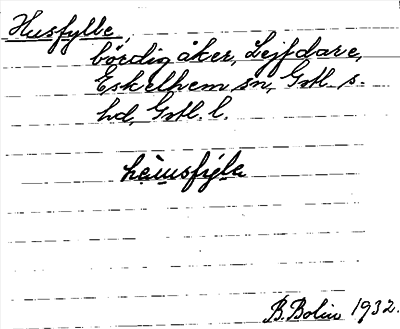 Husfylle,
bördig åker, Lejfdare,
Eskelhem sn, Gotl. s.
hd, Gotl. l.
hèusfýle
B. Bolin 1932.